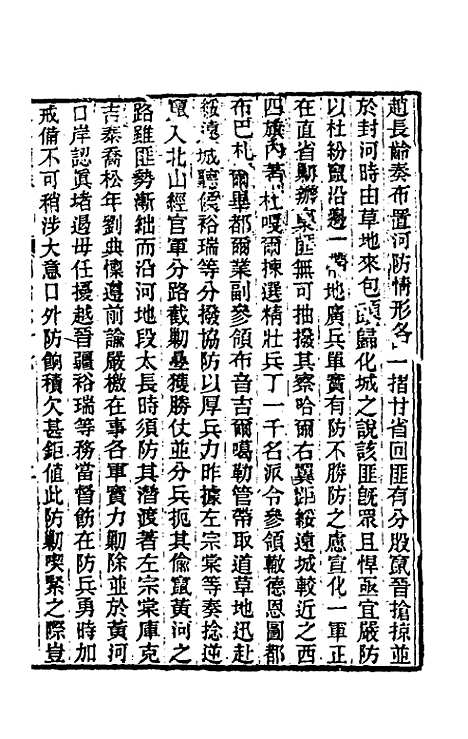 趙長齡奏布置河防情形各一摺甘省回匪有分股竄晉搶掠並
於封河時由草地來包頭歸化城之說該匪旣眾且悍亟宜嚴防
以杜紛竄沿邊一帶地廣兵單實有防不勝防之慮宣化一軍正
在直省勦辦梟匪無可抽撥其察哈爾右翼距綏遠城較近之西
四旗內著杜嘎爾揀選精壯兵丁一千名派令參領轍德恩圖都
布巴札爾畢都爾業副參領布音吉爾噶勒管帶取道草地迅赴
綏遠城聽候裕瑞等分撥協防以厚兵力昨據左宗棠等奏捻逆
竄入北山經官軍分路截勦疊獲勝仗並分兵扼其偷竄黃河之
路雖匪勢漸絀而沿河地段太長時須防其潛渡著左宗棠庫克
吉泰喬松年劉典懍遵前諭嚴檄在事各軍實力勦除並於黃河
口岸認眞堵遏毋任擾越晉疆裕瑞等務當督飭在防兵勇時加
戒備不可稍涉大意口外防餉積欠甚鉅値此防勦喫緊之際豈